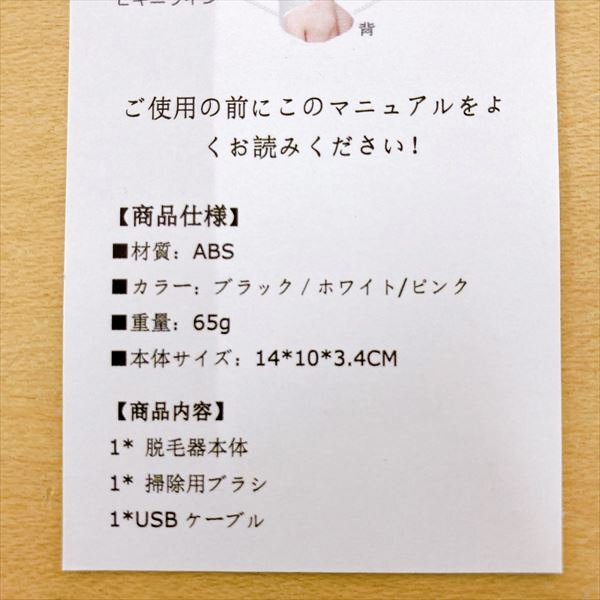 ビキニライン
背
ご使用の前にこのマニュアルをよ
くお読みください!
【商品仕様】
■材質: ABS
■カラー: ブラック / ホワイト/ピンク
■重量: 65g
■本体サイズ: 14*10*3.4CM
【商品内容】
1* 脱毛器本体
1* 掃除用ブラシ
1*USB ケーブル